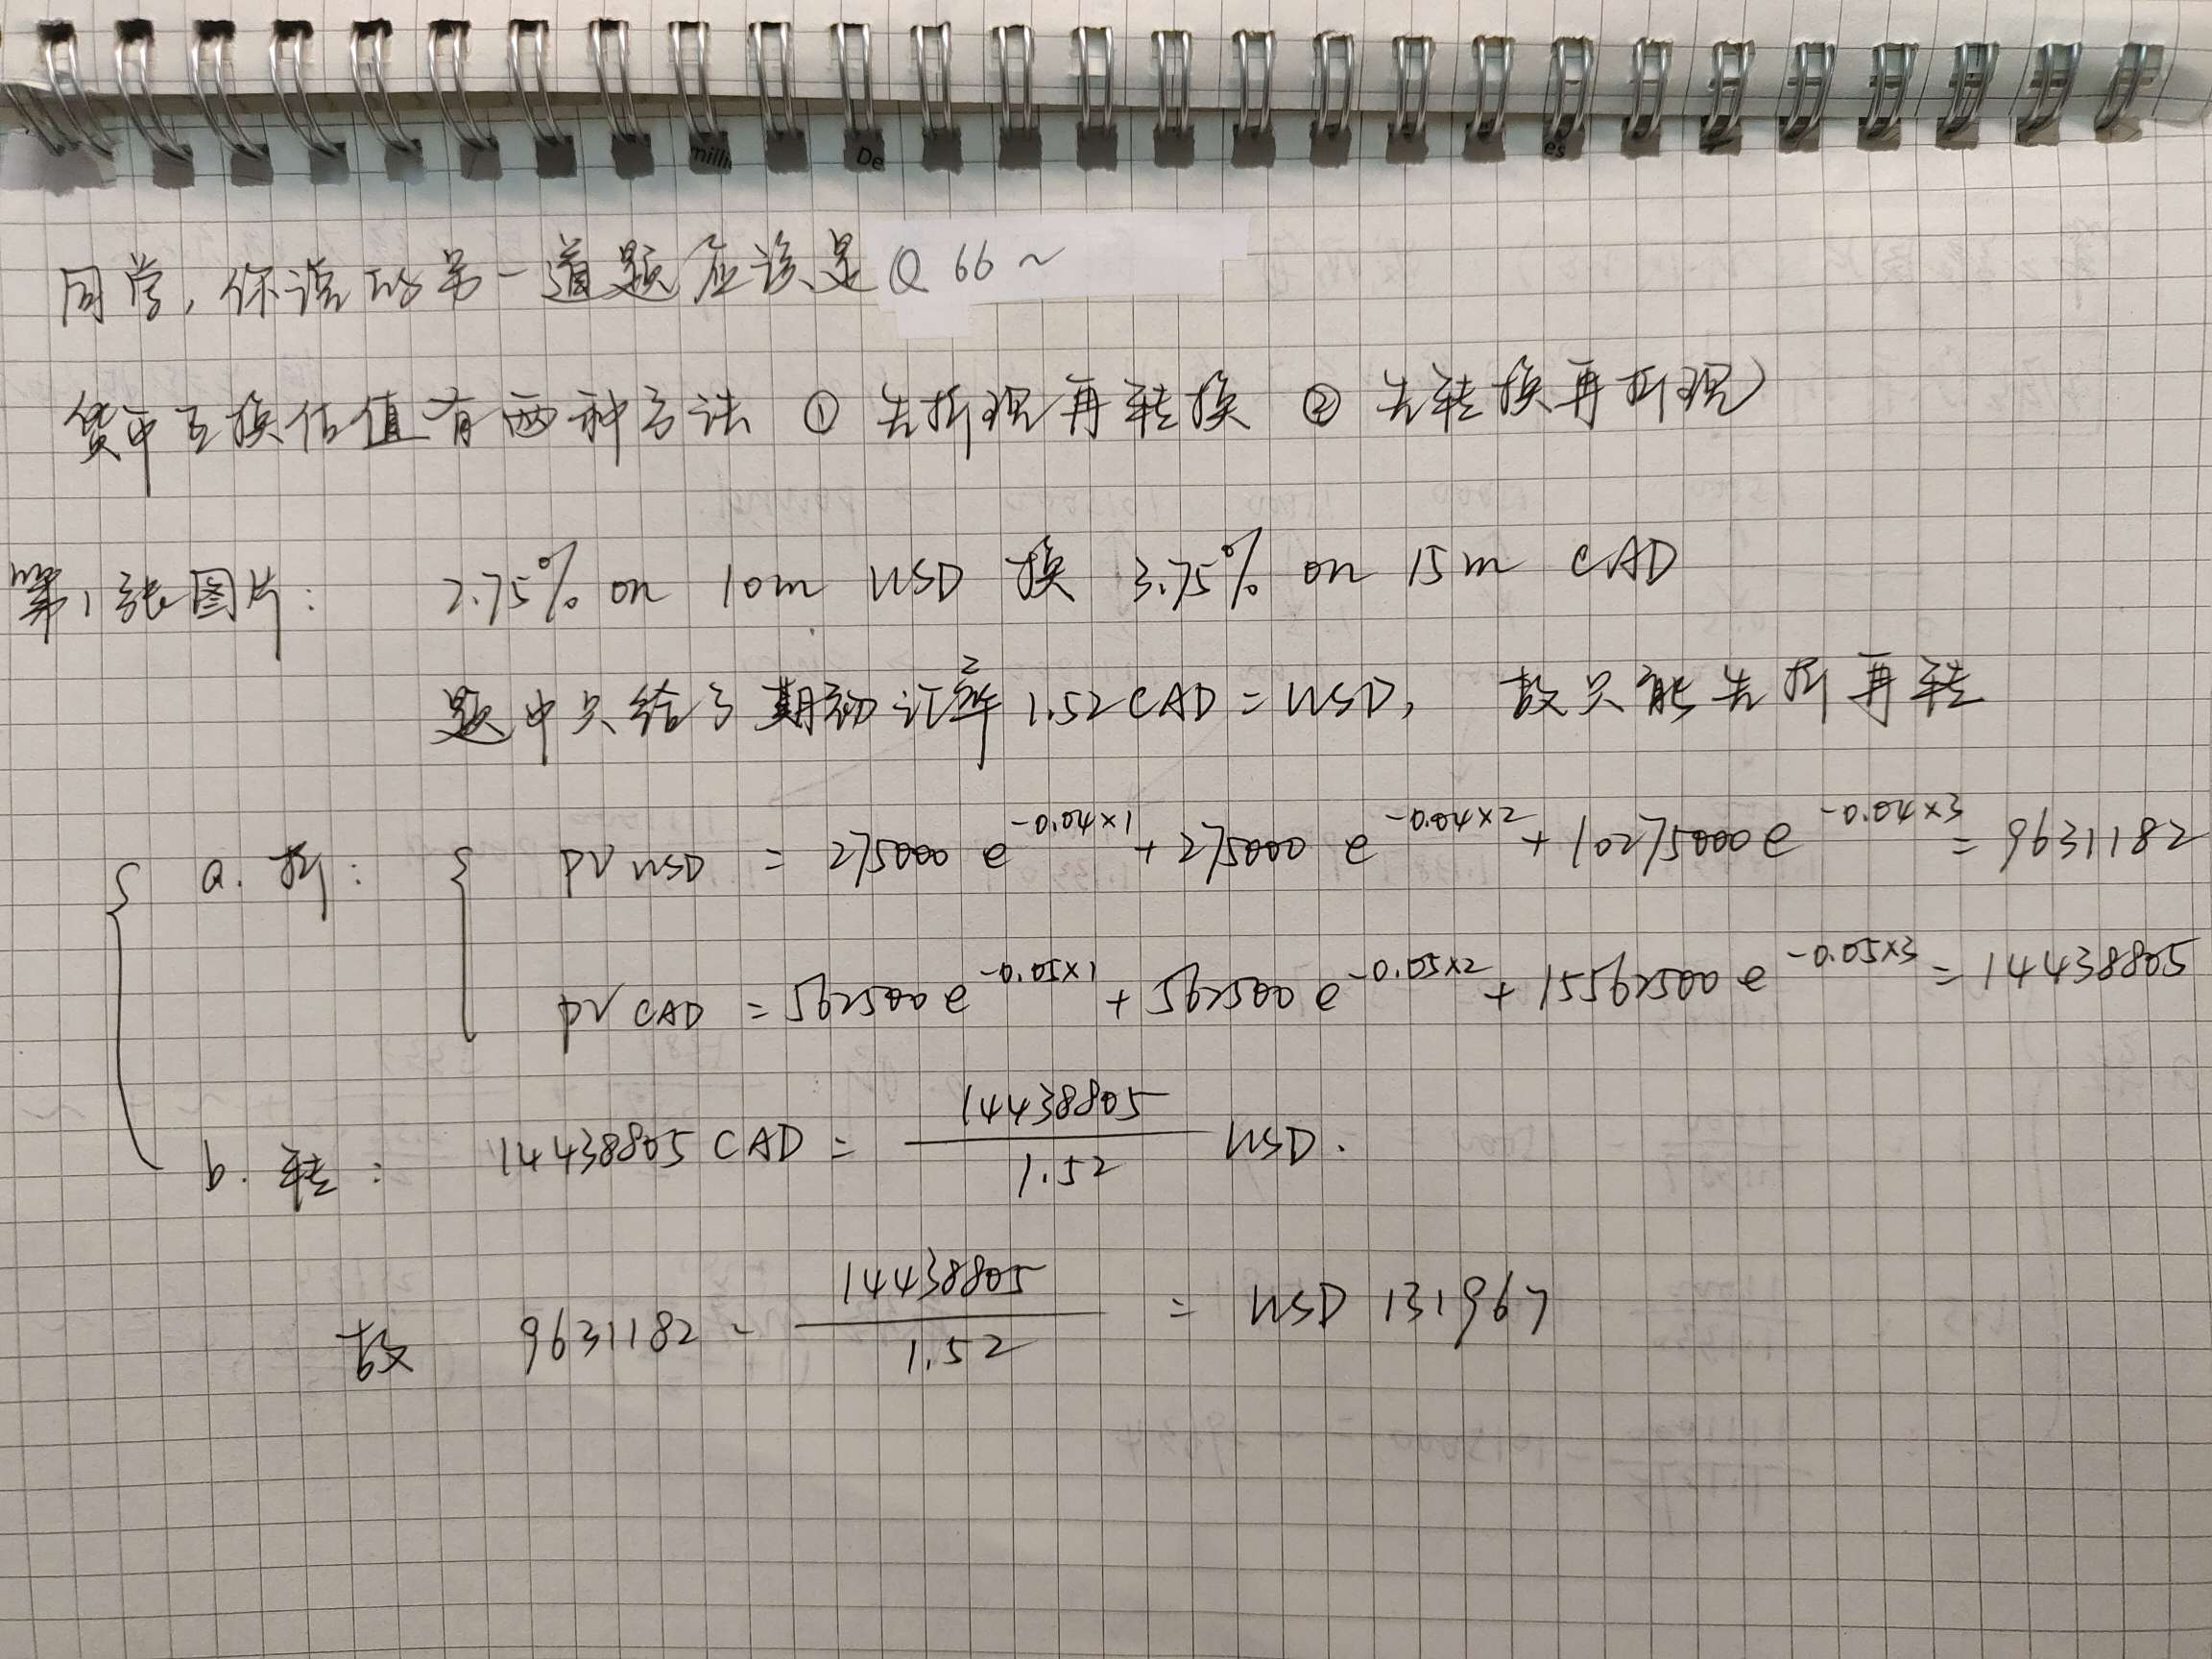 同学,你说的另一道题应该是 Q 66 ~
货币互换估值有两种方法 ① 先折现再转换 ② 先转换再折现
第1张图片: 2.75% on 10m USD 换 3.75% on 15m CAD
题中只给了期初汇率 1.52 CAD = USD, 故只能先折再转
a. 折: PV USD = 275000 e^{-0.04×1} + 275000 e^{-0.04×2} + 10275000 e^{-0.04×3} = 9631182
PV CAD = 562500 e^{-0.05×1} + 562500 e^{-0.05×2} + 15562500 e^{-0.05×3} = 14438805
b. 转: 14438805 CAD = 14438805/1.52 USD.
故 9631182 - 14438805/1.52 = USD 131967